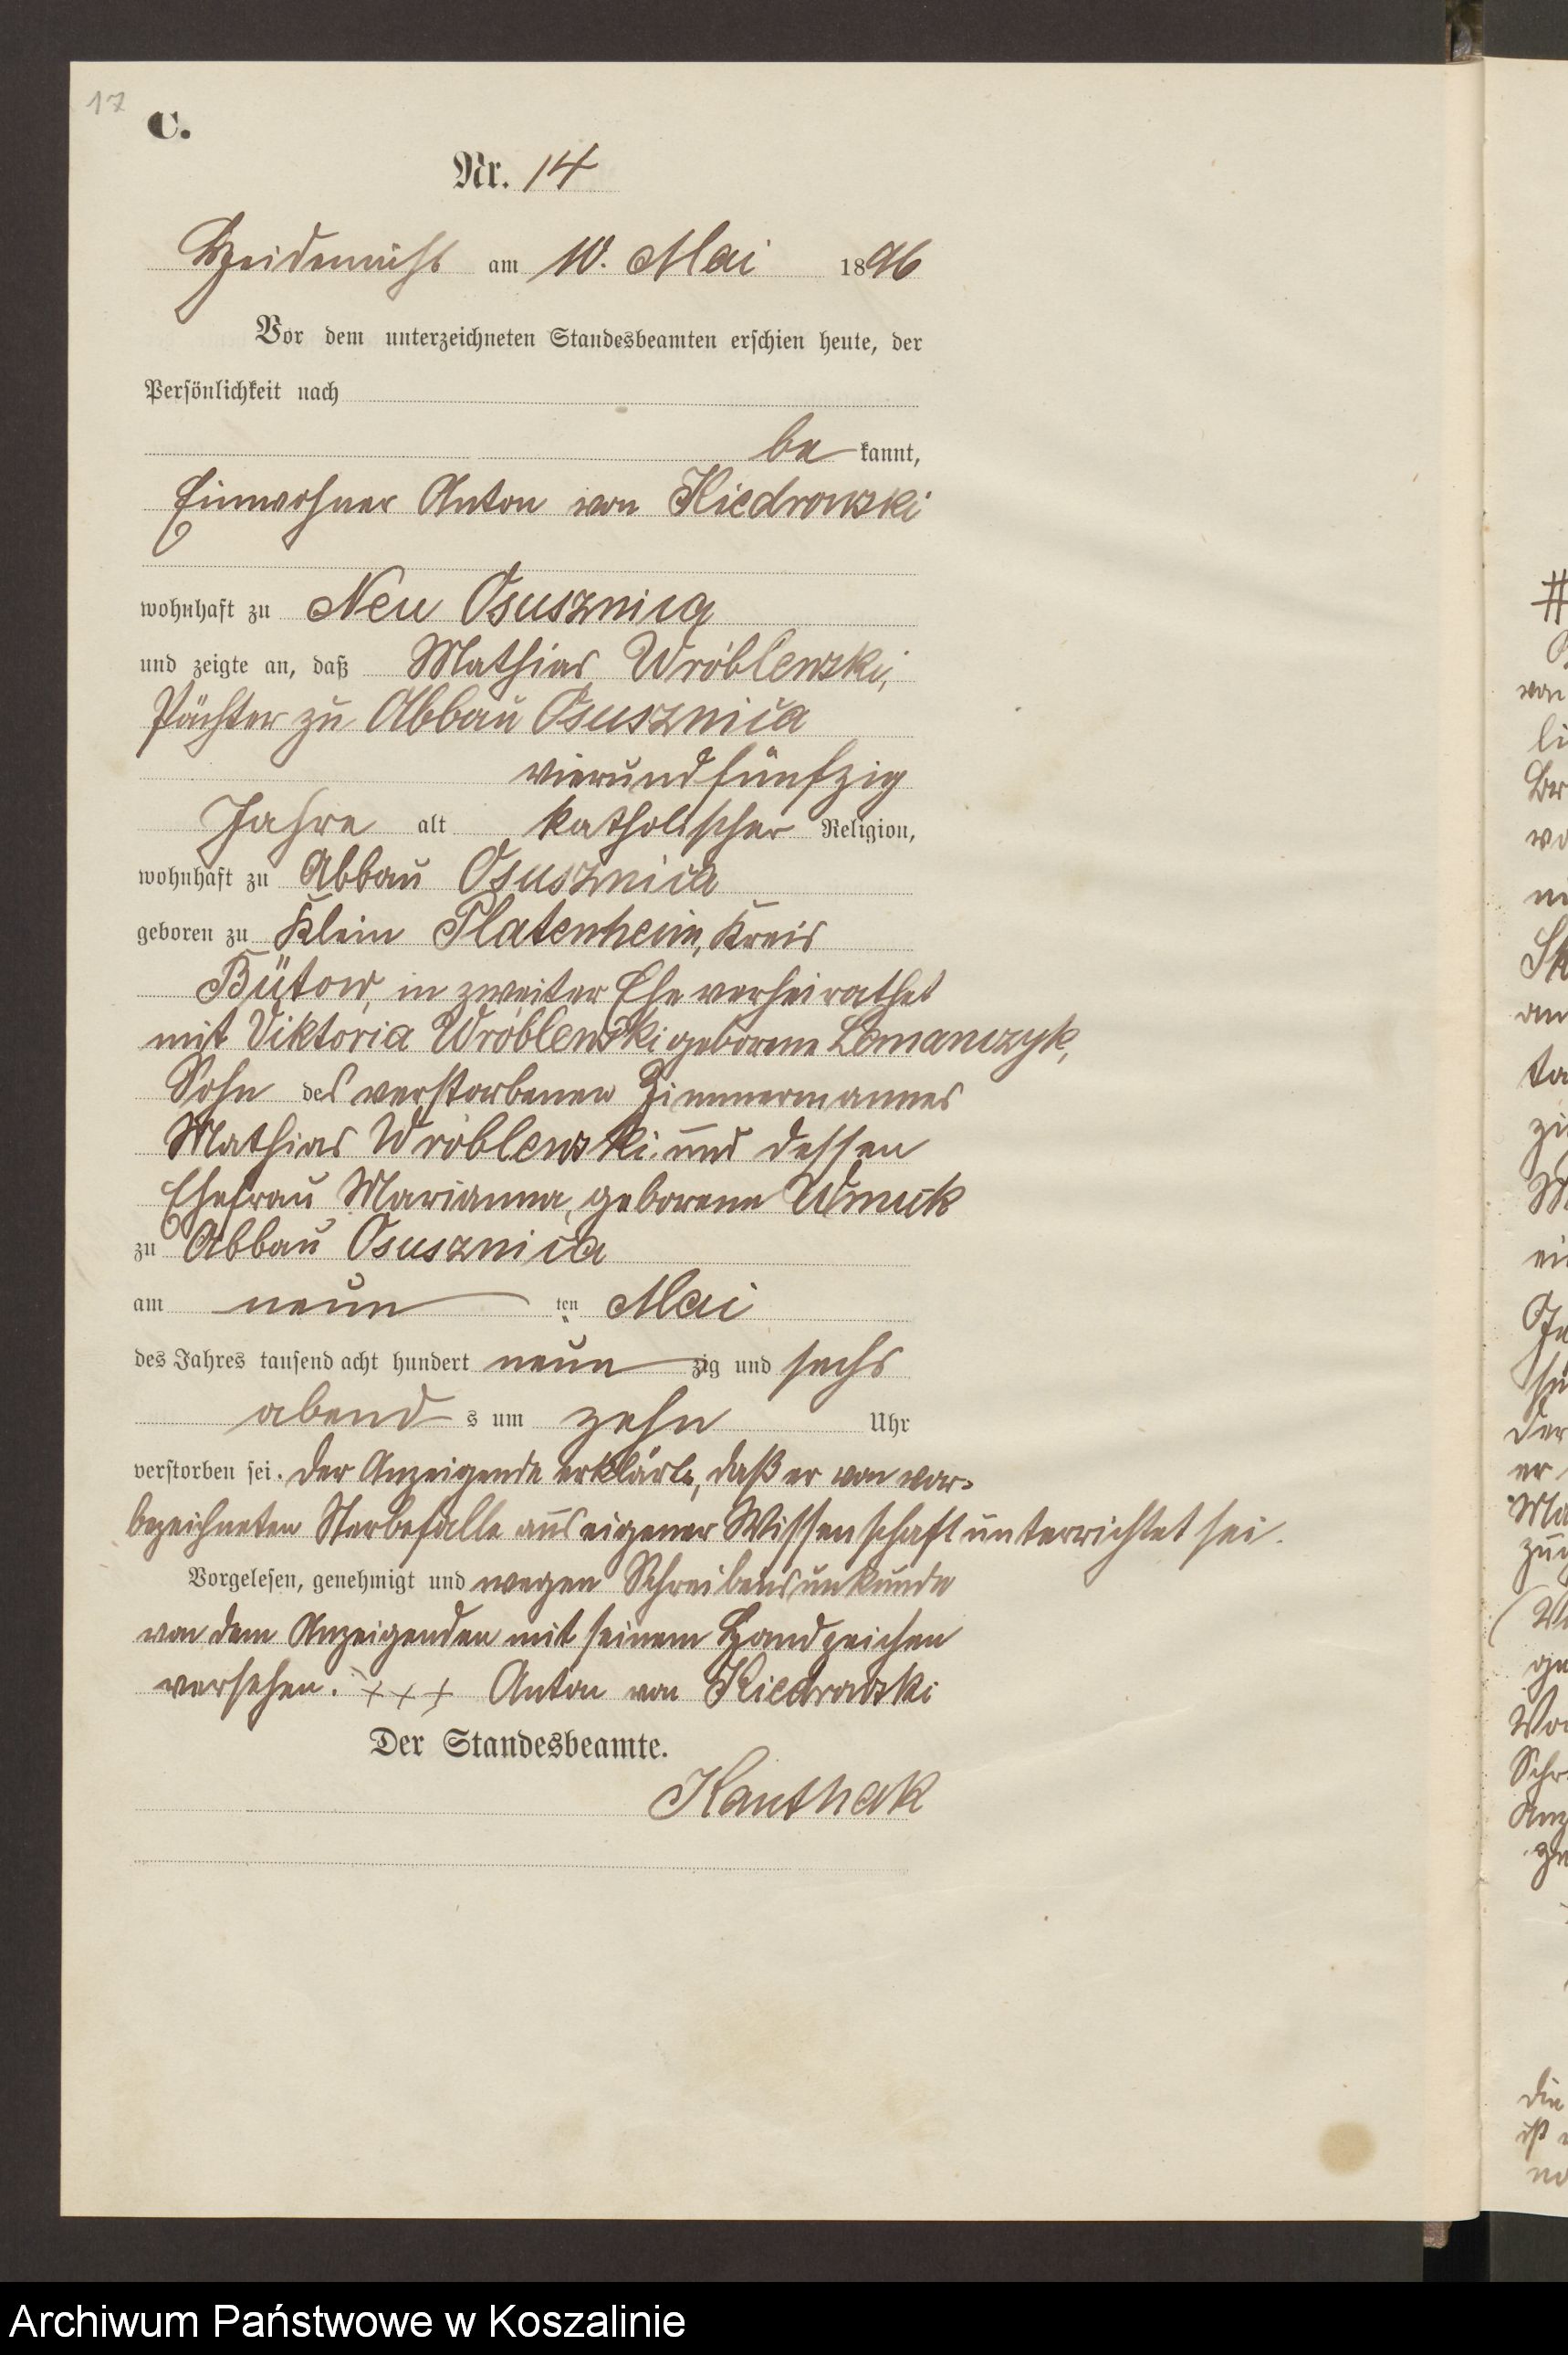 17
C.
Nr. 14
Heidemühl am 10. Mai 1896
Vor dem unterzeichneten Standesbeamten erschien heute, der
Persönlichkeit nach
be kannt,
Einwohner Anton von Kiedrowski
wohnhaft zu Neu Osusznica
und zeigte an, daß Mathias Wróblewski,
Pächter zu Abbau Osusznica
vierundfünfzig
Jahre alt katholischer Religion,
wohnhaft zu Abbau Osusznica
geboren zu Klein Platenheim, Kreis
Bütow, in zweiter Ehe verheirathet
mit Viktoria Wróblewski geborene Lomanczyk,
Sohn des verstorbenen Zimmermannes
Mathias Wróblewski und dessen
Ehefrau Marianna, geborene
zu Abbau Osusznica
am neun ten Mai
des Jahres tausend acht hundert neun zig und sechs
abend s um zehn Uhr
verstorben sei. Der Anzeigende erklärte, daß er von vor-
bezeichneten Sterbefalle aus eigener Wissenschaft unterrichtet sei.
Vorgelesen, genehmigt und wegen Schreibensunkunde
von dem Anzeigenden mit seinem Handzeichen
versehen. +++ Anton von Kiedrowski
Der Standesbeamte.
Kanthak
Archiwum Państwowe w Koszalinie